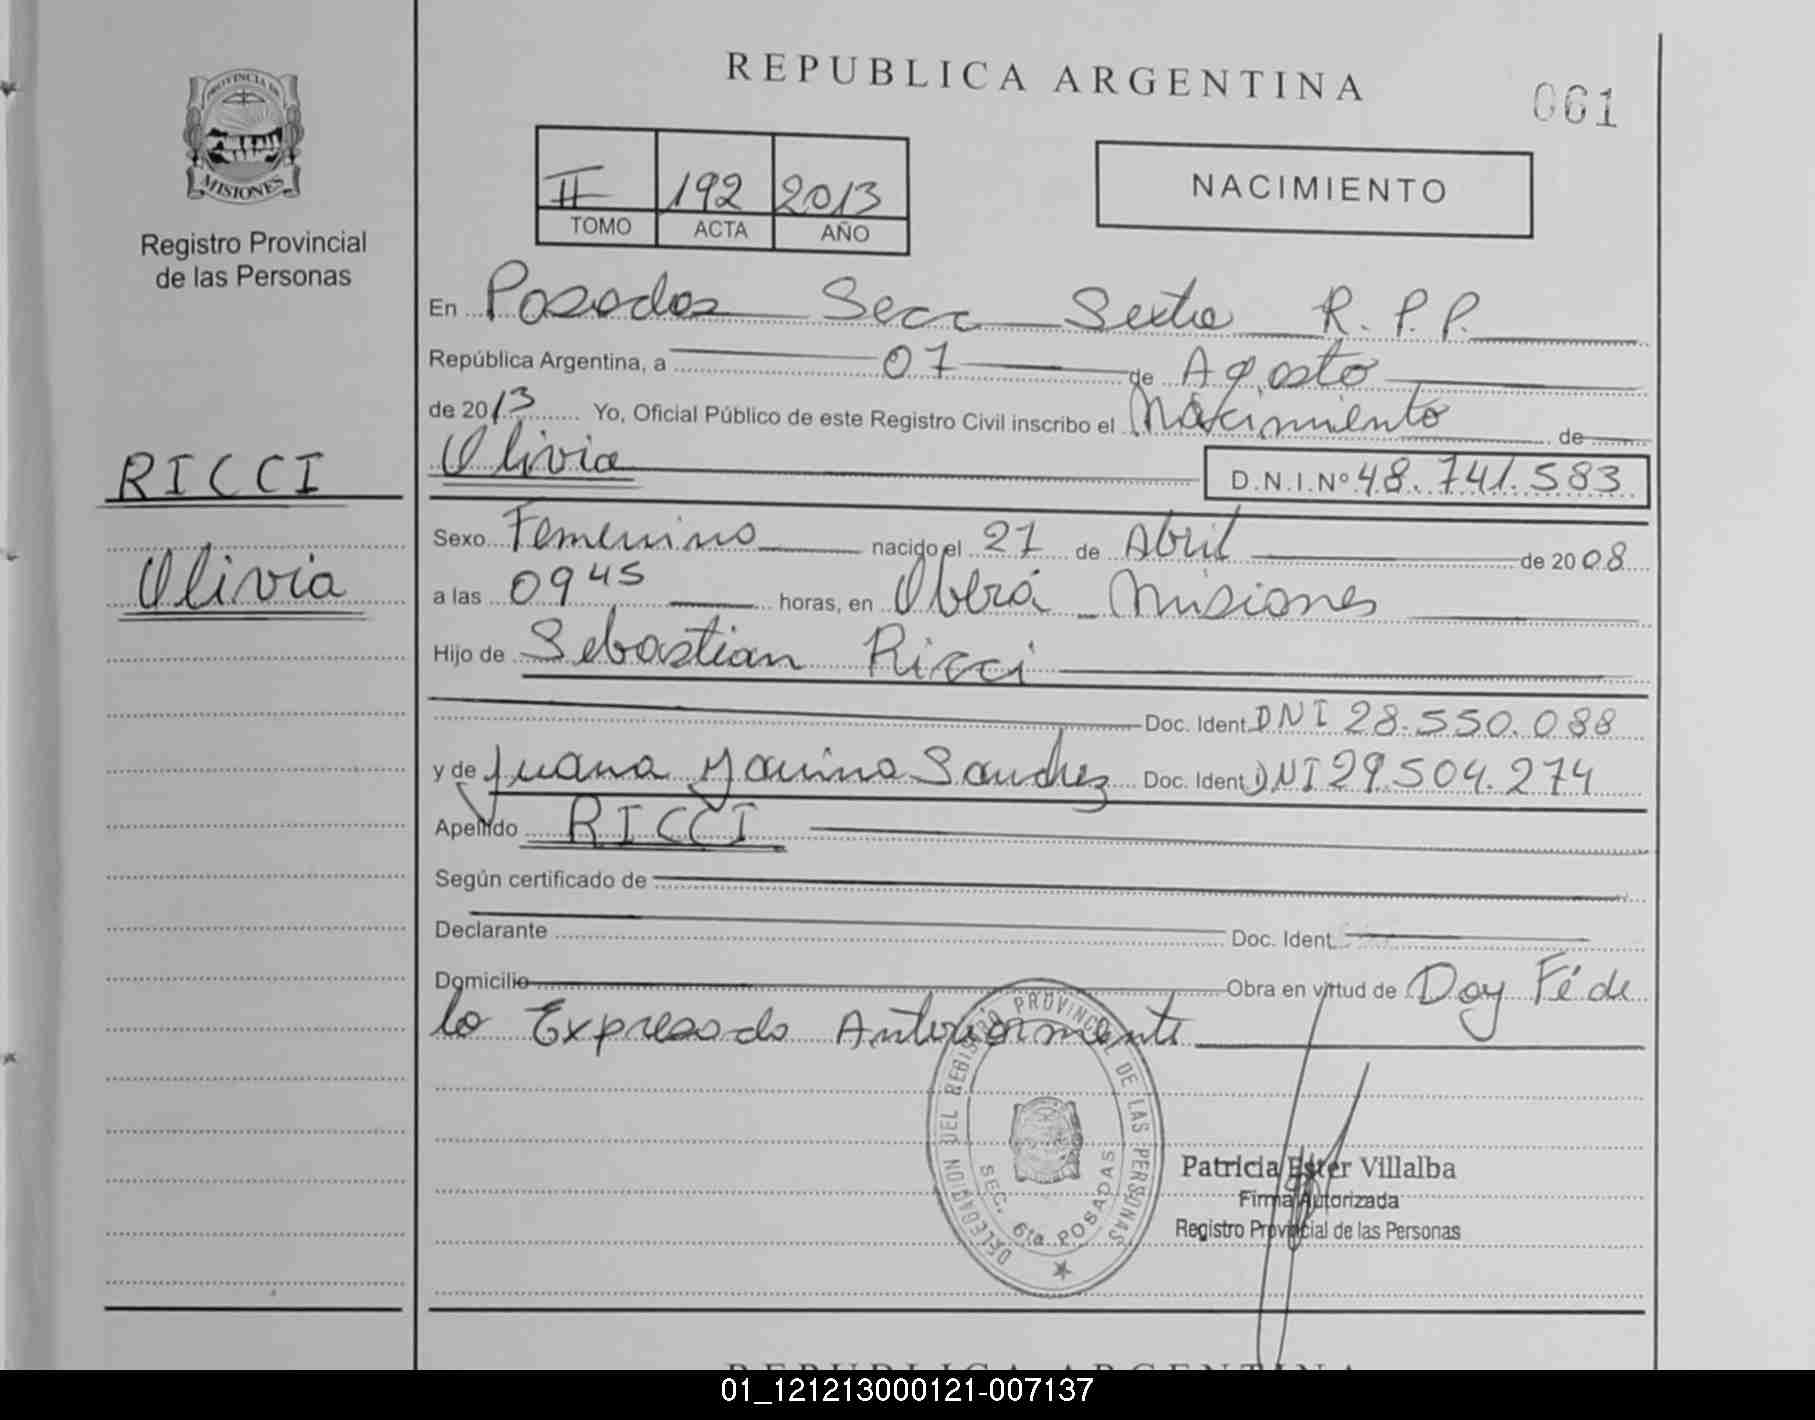 REPUBLICA ARGENTINA
061
PROVINCIA DE
MISIONES
Registro Provincial
de las Personas
II 192 2013
TOMO ACTA AÑO
NACIMIENTO
En Posadas Secc Sexta R.P.P.
República Argentina, a 07 de Agosto
de 2013 Yo, Oficial Público de este Registro Civil inscribo el Nacimiento de
Olivia D.N.I.Nº 48.741.583
RICCI
Olivia
Sexo Femenino nacido el 27 de Abril de 2008
a las 09 45 horas, en Oberá Misiones
Hijo de Sebastian Ricci
Doc. Ident. DNI 28.550.088
y de Juana Yanina Sanchez Doc. Ident. DNI 29.504.274
Apellido RICCI
Según certificado de
Declarante Doc. Ident.
Domicilio Obra en virtud de Doy Fé de
lo Expresado Anteriormente
DELEGACION DEL REGISTRO PROVINCIAL DE LAS PERSONAS
SEC. 6ta POSADAS
Patricia Ester Villalba
Firma Autorizada
Registro Provincial de las Personas
REPUBLICA ARGENTINA
01_121213000121-007137